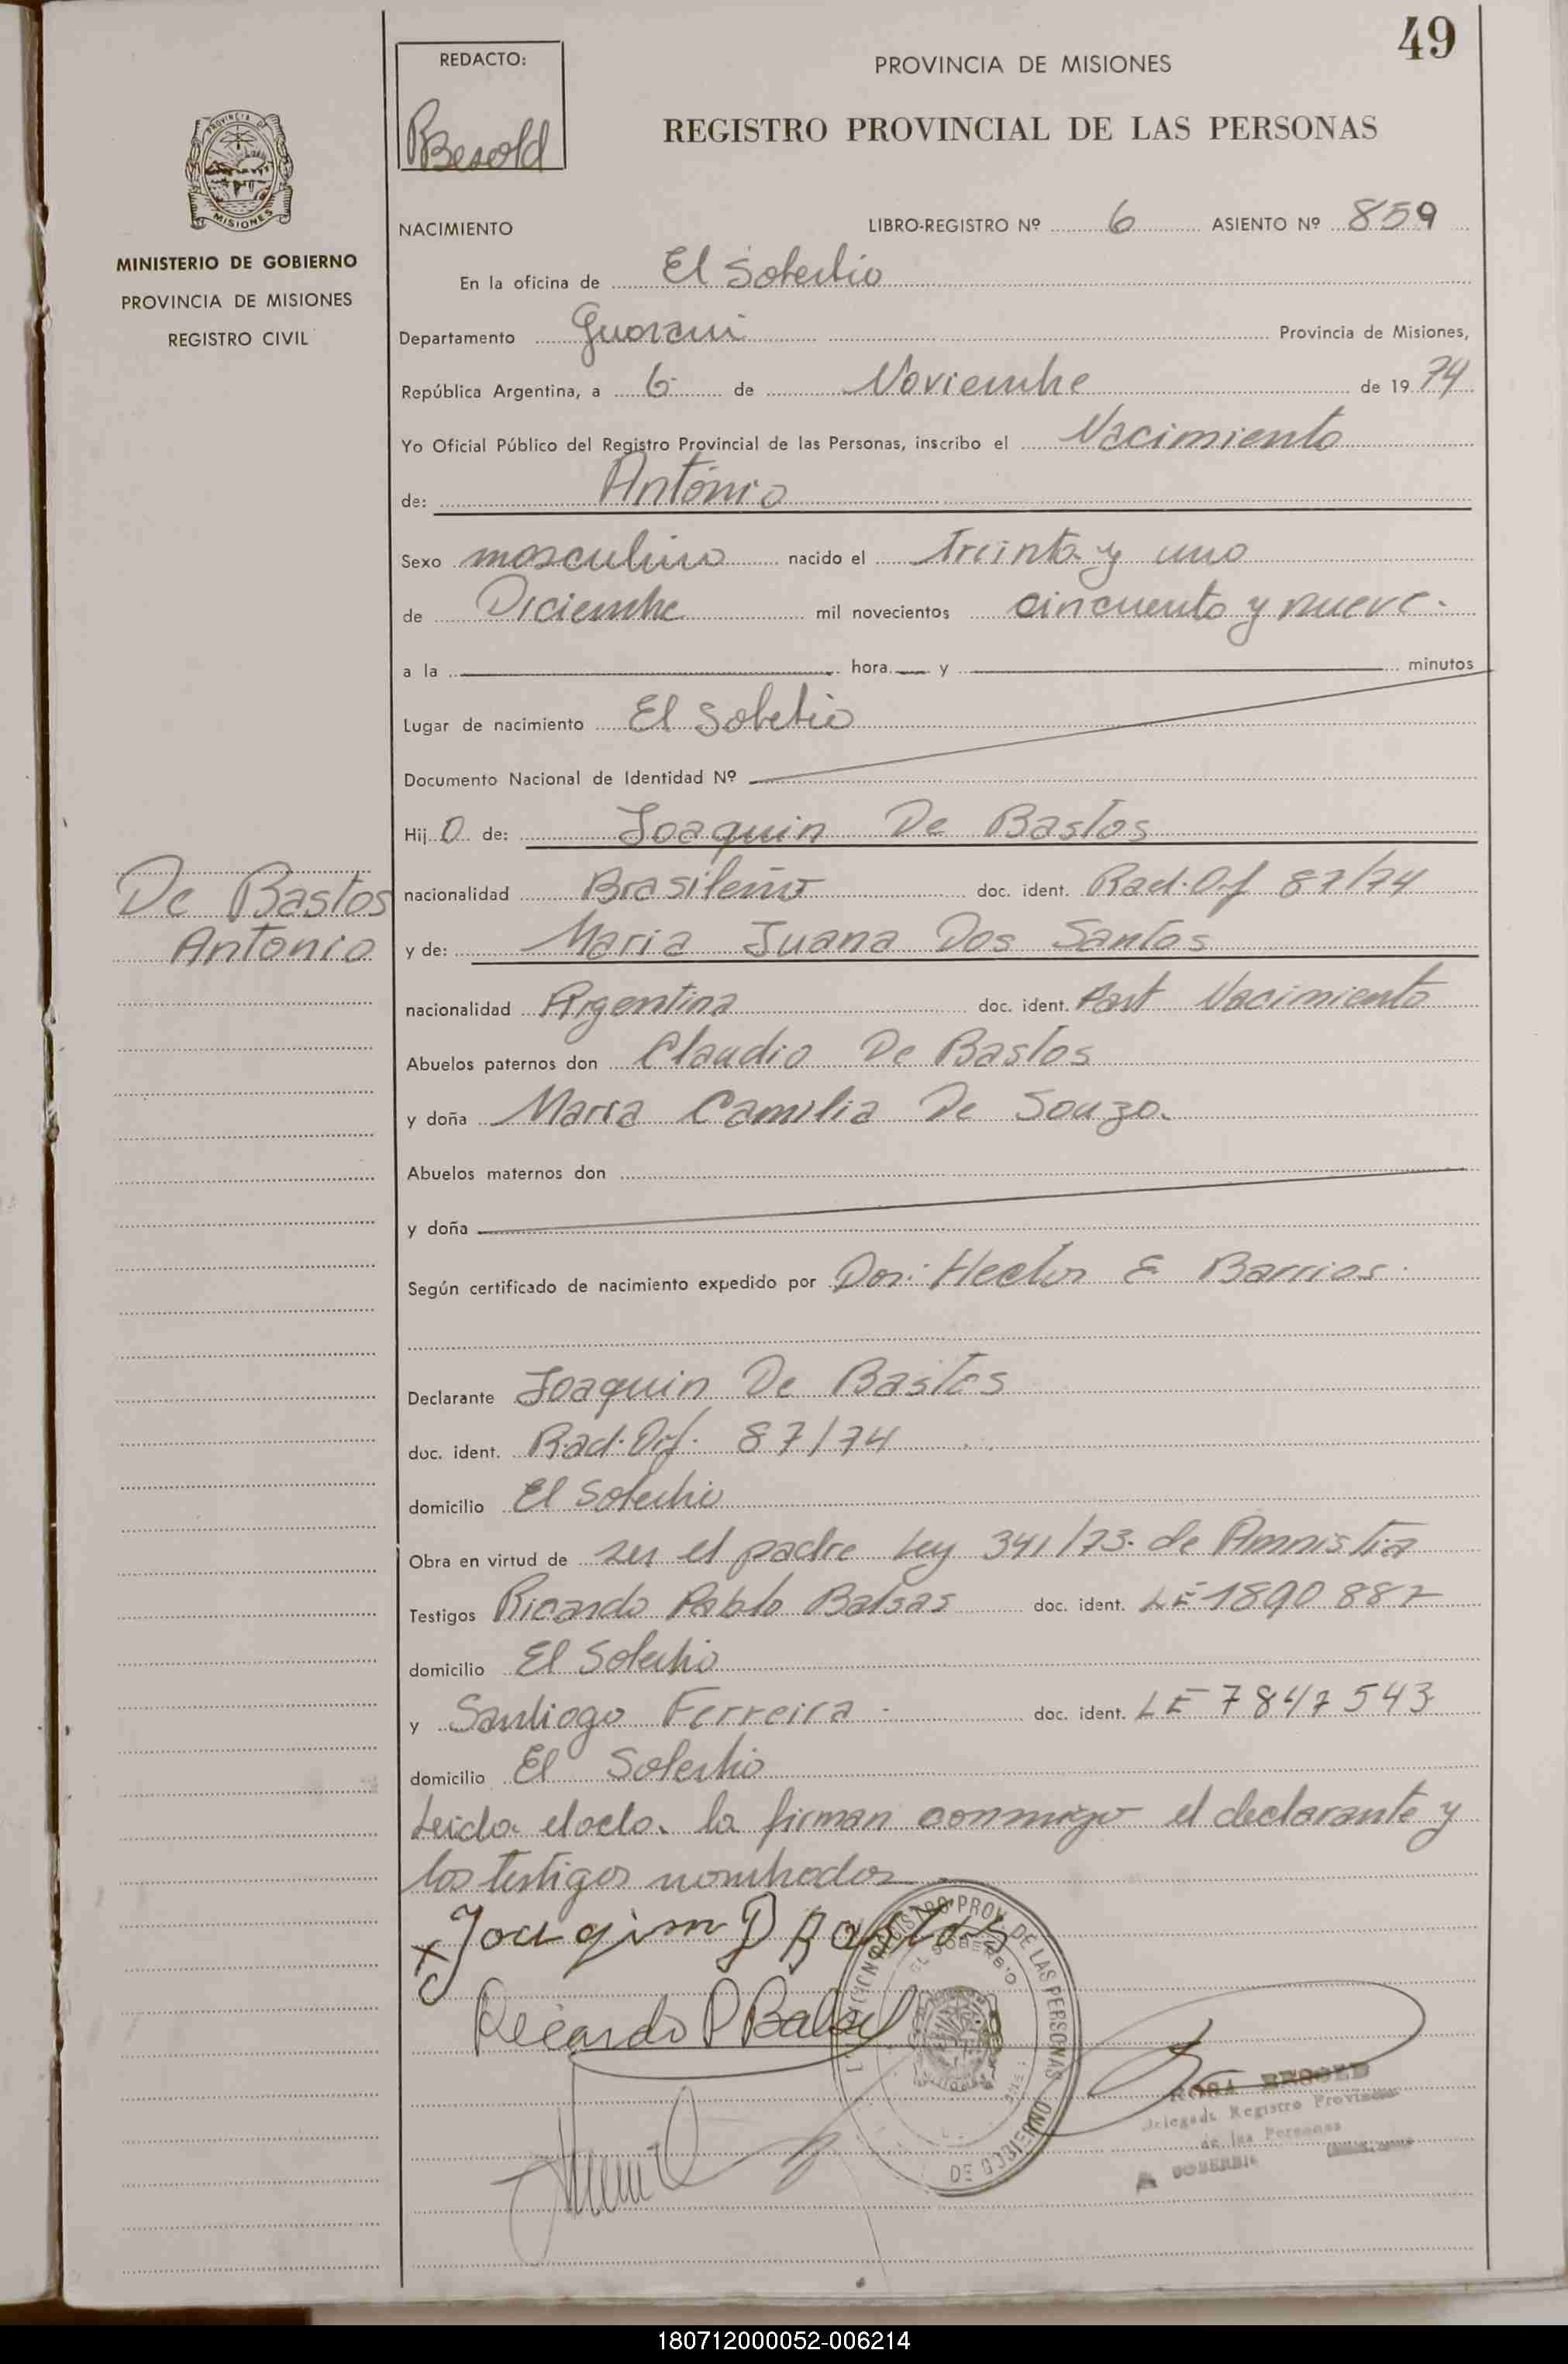 49
REDACTO:
PROVINCIA DE MISIONES
REGISTRO PROVINCIAL DE LAS PERSONAS
MISIONES
MINISTERIO DE GOBIERNO
PROVINCIA DE MISIONES
REGISTRO CIVIL
NACIMIENTO LIBRO-REGISTRO Nº 6 ASIENTO Nº 859
En la oficina de El Soberbio
Departamento Guarani Provincia de Misiones,
República Argentina, a 6 de Noviembre de 1974
Yo Oficial Público del Registro Provincial de las Personas, inscribo el Nacimiento
de: Antonio
Sexo masculino nacido el Treinta y uno
de Diciembre mil novecientos cincuenta y nueve.
a la hora y minutos
Lugar de nacimiento El Sobebio
Documento Nacional de Identidad Nº
Hij o de: Joaquin De Bastos
nacionalidad Brasileño doc. ident. Rad. Of 87/74
De Bastos
Antonio
y de: Maria Juana Dos Santos
nacionalidad Argentina doc. ident. Part Nacimiento
Abuelos paternos don Claudio De Bastos
y doña Maria Camilia De Souza.
Abuelos maternos don
y doña
Según certificado de nacimiento expedido por Dor: Hector E Barrios.
Declarante Joaquin De Bastos
doc. ident. Rad. Of. 87/74
domicilio El Soberbio
Obra en virtud de ser el padre Ley 341/73. de Amnistia
Testigos Ricardo Pablo Balsas doc. ident. LE 1890 887
domicilio El Soberbio
y Santiago Ferreira - doc. ident. LE 7847543
domicilio El Soberbio
Leida el acta. la firman conmigo el declarante y
los testigos nombrados
Joaquim D Bastos
Ricardo P Balsas
REGISTRO PROV. DE LAS PERSONAS
EL SOBERBIO
DE GOBIERNO
ROSA
Delegada Registro Provincial
de las Personas
SOBERBIO
180712000052-006214